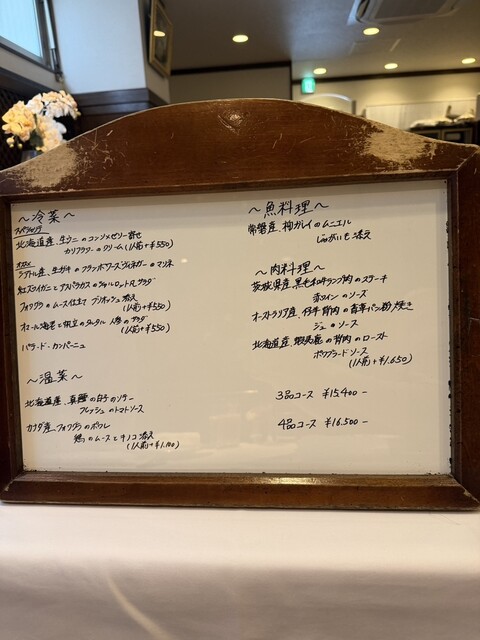 ～冷菜～
スペシャリテ
北海道産、生ウニのコンソメゼリー寄せ
カリフラワーのクリーム(1人前+¥550)
オススメ
シアトル産、生ガキのフランボワーズヴィネガーのマリネ
紅ズワイガニとアスパラガスのシャルロット仕立、サラダ
フォワグラのムース仕立て ブリオッシュ添え
(1人前+¥550)
オマール海老と帆立のタルタル 人参のサラダ
(1人前+¥550)
パテ・ド・カンパーニュ
～温菜～
北海道産、真鱈の白子のソテー
フレッシュのトマトソース
カナダ産、フォワグラのポワレ
鶏のムースとキノコ添え
(1人前+¥1,100)
～魚料理～
常磐産、柳ガレイのムニエル
じゃがいも添え
～肉料理～
茨城県産、黒毛和牛ランプ肉のステーキ
赤ワインのソース
オーストラリア産、仔羊背肉の香草パン粉焼き
ジュのソース
北海道産、蝦夷鹿の背肉のロースト
ポワヴラードソース
(1人前+¥1,650)
3品コース ¥15,400-
4品コース ¥16,500-